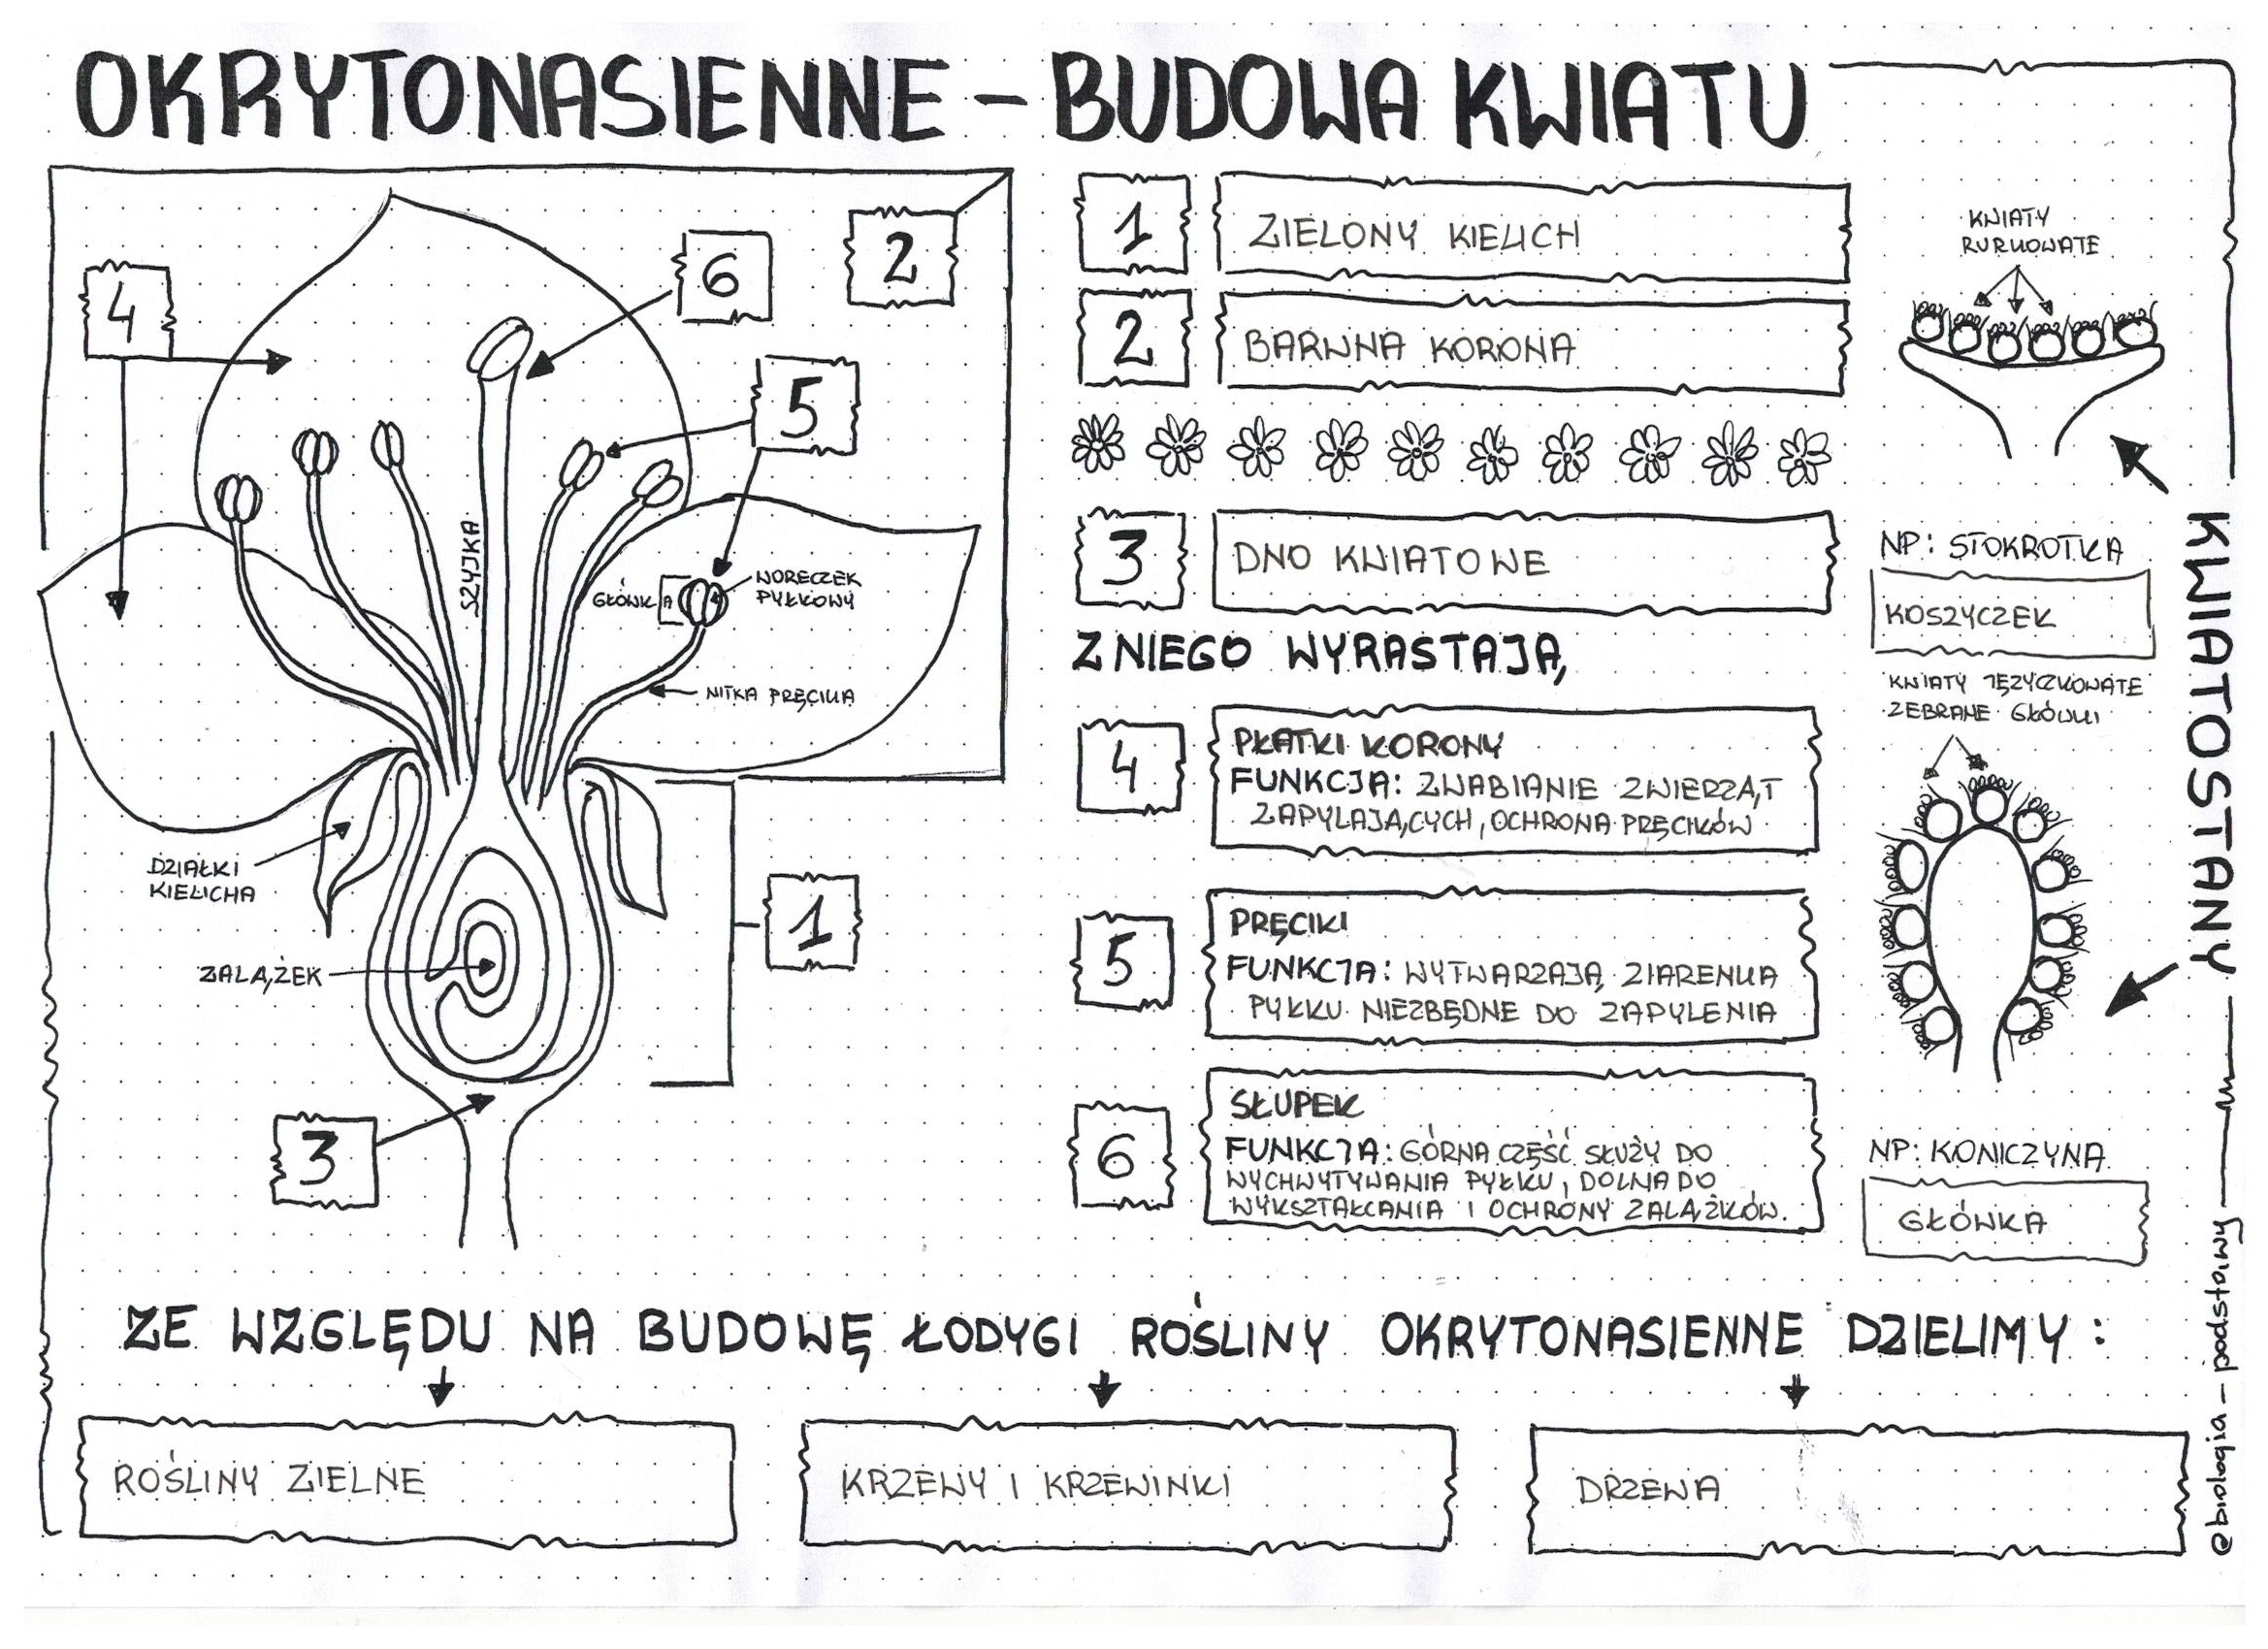 OKRYTONASIENNE – BUDOWA KWIATU
4
6
2
5
SZYJKA
GŁÓWKA
WORECZEK
PYŁKOWY
NITKA PRĘCIKA
DZIAŁKI
KIELICHA
ZALĄŻEK
1
3
1
ZIELONY KIELICH
2
BARWNA KORONA
3
DNO KWIATOWE
Z NIEGO WYRASTAJĄ
4
PŁATKI KORONY
FUNKCJA: ZWABIANIE ZWIERZĄT
ZAPYLAJĄCYCH, OCHRONA PRĘCIKÓW
5
PRĘCIKI
FUNKCJA: WYTWARZAJĄ ZIARENKA
PYŁKU NIEZBĘDNE DO ZAPYLENIA
6
SŁUPEK
FUNKCJA: GÓRNA CZĘŚĆ SŁUŻY DO
WYCHWYTYWANIA PYŁKU, DOLNA DO
WYKSZTAŁCANIA I OCHRONY ZALĄŻKÓW.
KWIATY
RURKOWATE
NP: STOKROTKA
KOSZYCZEK
KWIATY JĘZYCZKOWATE
ZEBRANE GŁÓWKI
NP: KONICZYNA
GŁÓWKA
KWIATOSTANY
@biologia – podstawy
ZE WZGLĘDU NA BUDOWĘ ŁODYGI ROŚLINY OKRYTONASIENNE DZIELIMY:
ROŚLINY ZIELNE
KRZEWY I KRZEWINKI
DRZEWA